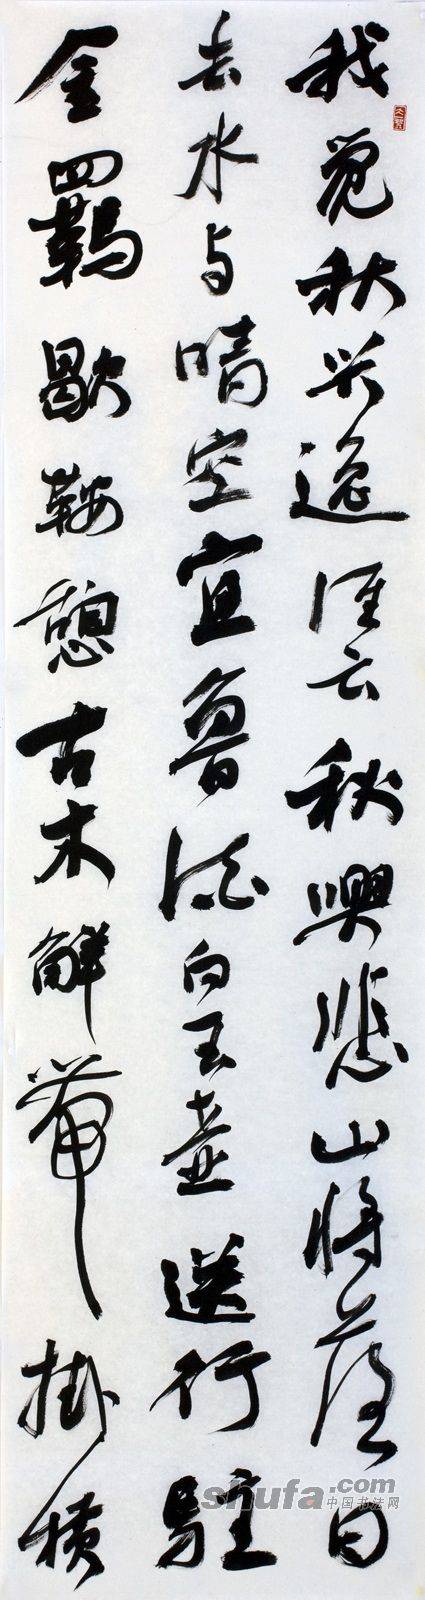 我觉秋兴逸谁云秋興悲山将落日
去水与晴空宜鲁酒白玉壶送行駐
金羈歇鞍憩古木解带掛横
shufa.com
中国书法网